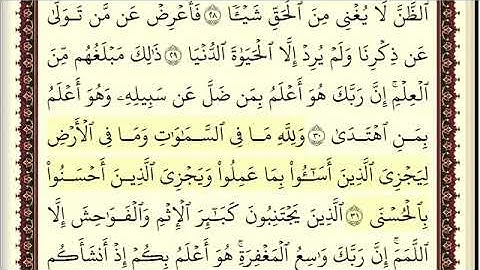 ٱلظَّنَّ لَا يُغْنِى مِنَ ٱلْحَقِّ شَيْـًٔا ۝٢٨ فَأَعْرِضْ عَن مَّن تَوَلَّىٰ
عَن ذِكْرِنَا وَلَمْ يُرِدْ إِلَّا ٱلْحَيَوٰةَ ٱلدُّنْيَا ۝٢٩ ذَٰلِكَ مَبْلَغُهُم مِّنَ
ٱلْعِلْمِ ۚ إِنَّ رَبَّكَ هُوَ أَعْلَمُ بِمَن ضَلَّ عَن سَبِيلِهِۦ وَهُوَ أَعْلَمُ
بِمَنِ ٱهْتَدَىٰ ۝٣٠ وَلِلَّهِ مَا فِى ٱلسَّمَـٰوَٰتِ وَمَا فِى ٱلْأَرْضِ
لِيَجْزِىَ ٱلَّذِينَ أَسَـٰٓـُٔوا۟ بِمَا عَمِلُوا۟ وَيَجْزِىَ ٱلَّذِينَ أَحْسَنُوا۟
بِٱلْحُسْنَى ۝٣١ ٱلَّذِينَ يَجْتَنِبُونَ كَبَـٰٓئِرَ ٱلْإِثْمِ وَٱلْفَوَٰحِشَ إِلَّا
ٱللَّمَمَ ۚ إِنَّ رَبَّكَ وَٰسِعُ ٱلْمَغْفِرَةِ ۚ هُوَ أَعْلَمُ بِكُمْ إِذْ أَنشَأَكُم